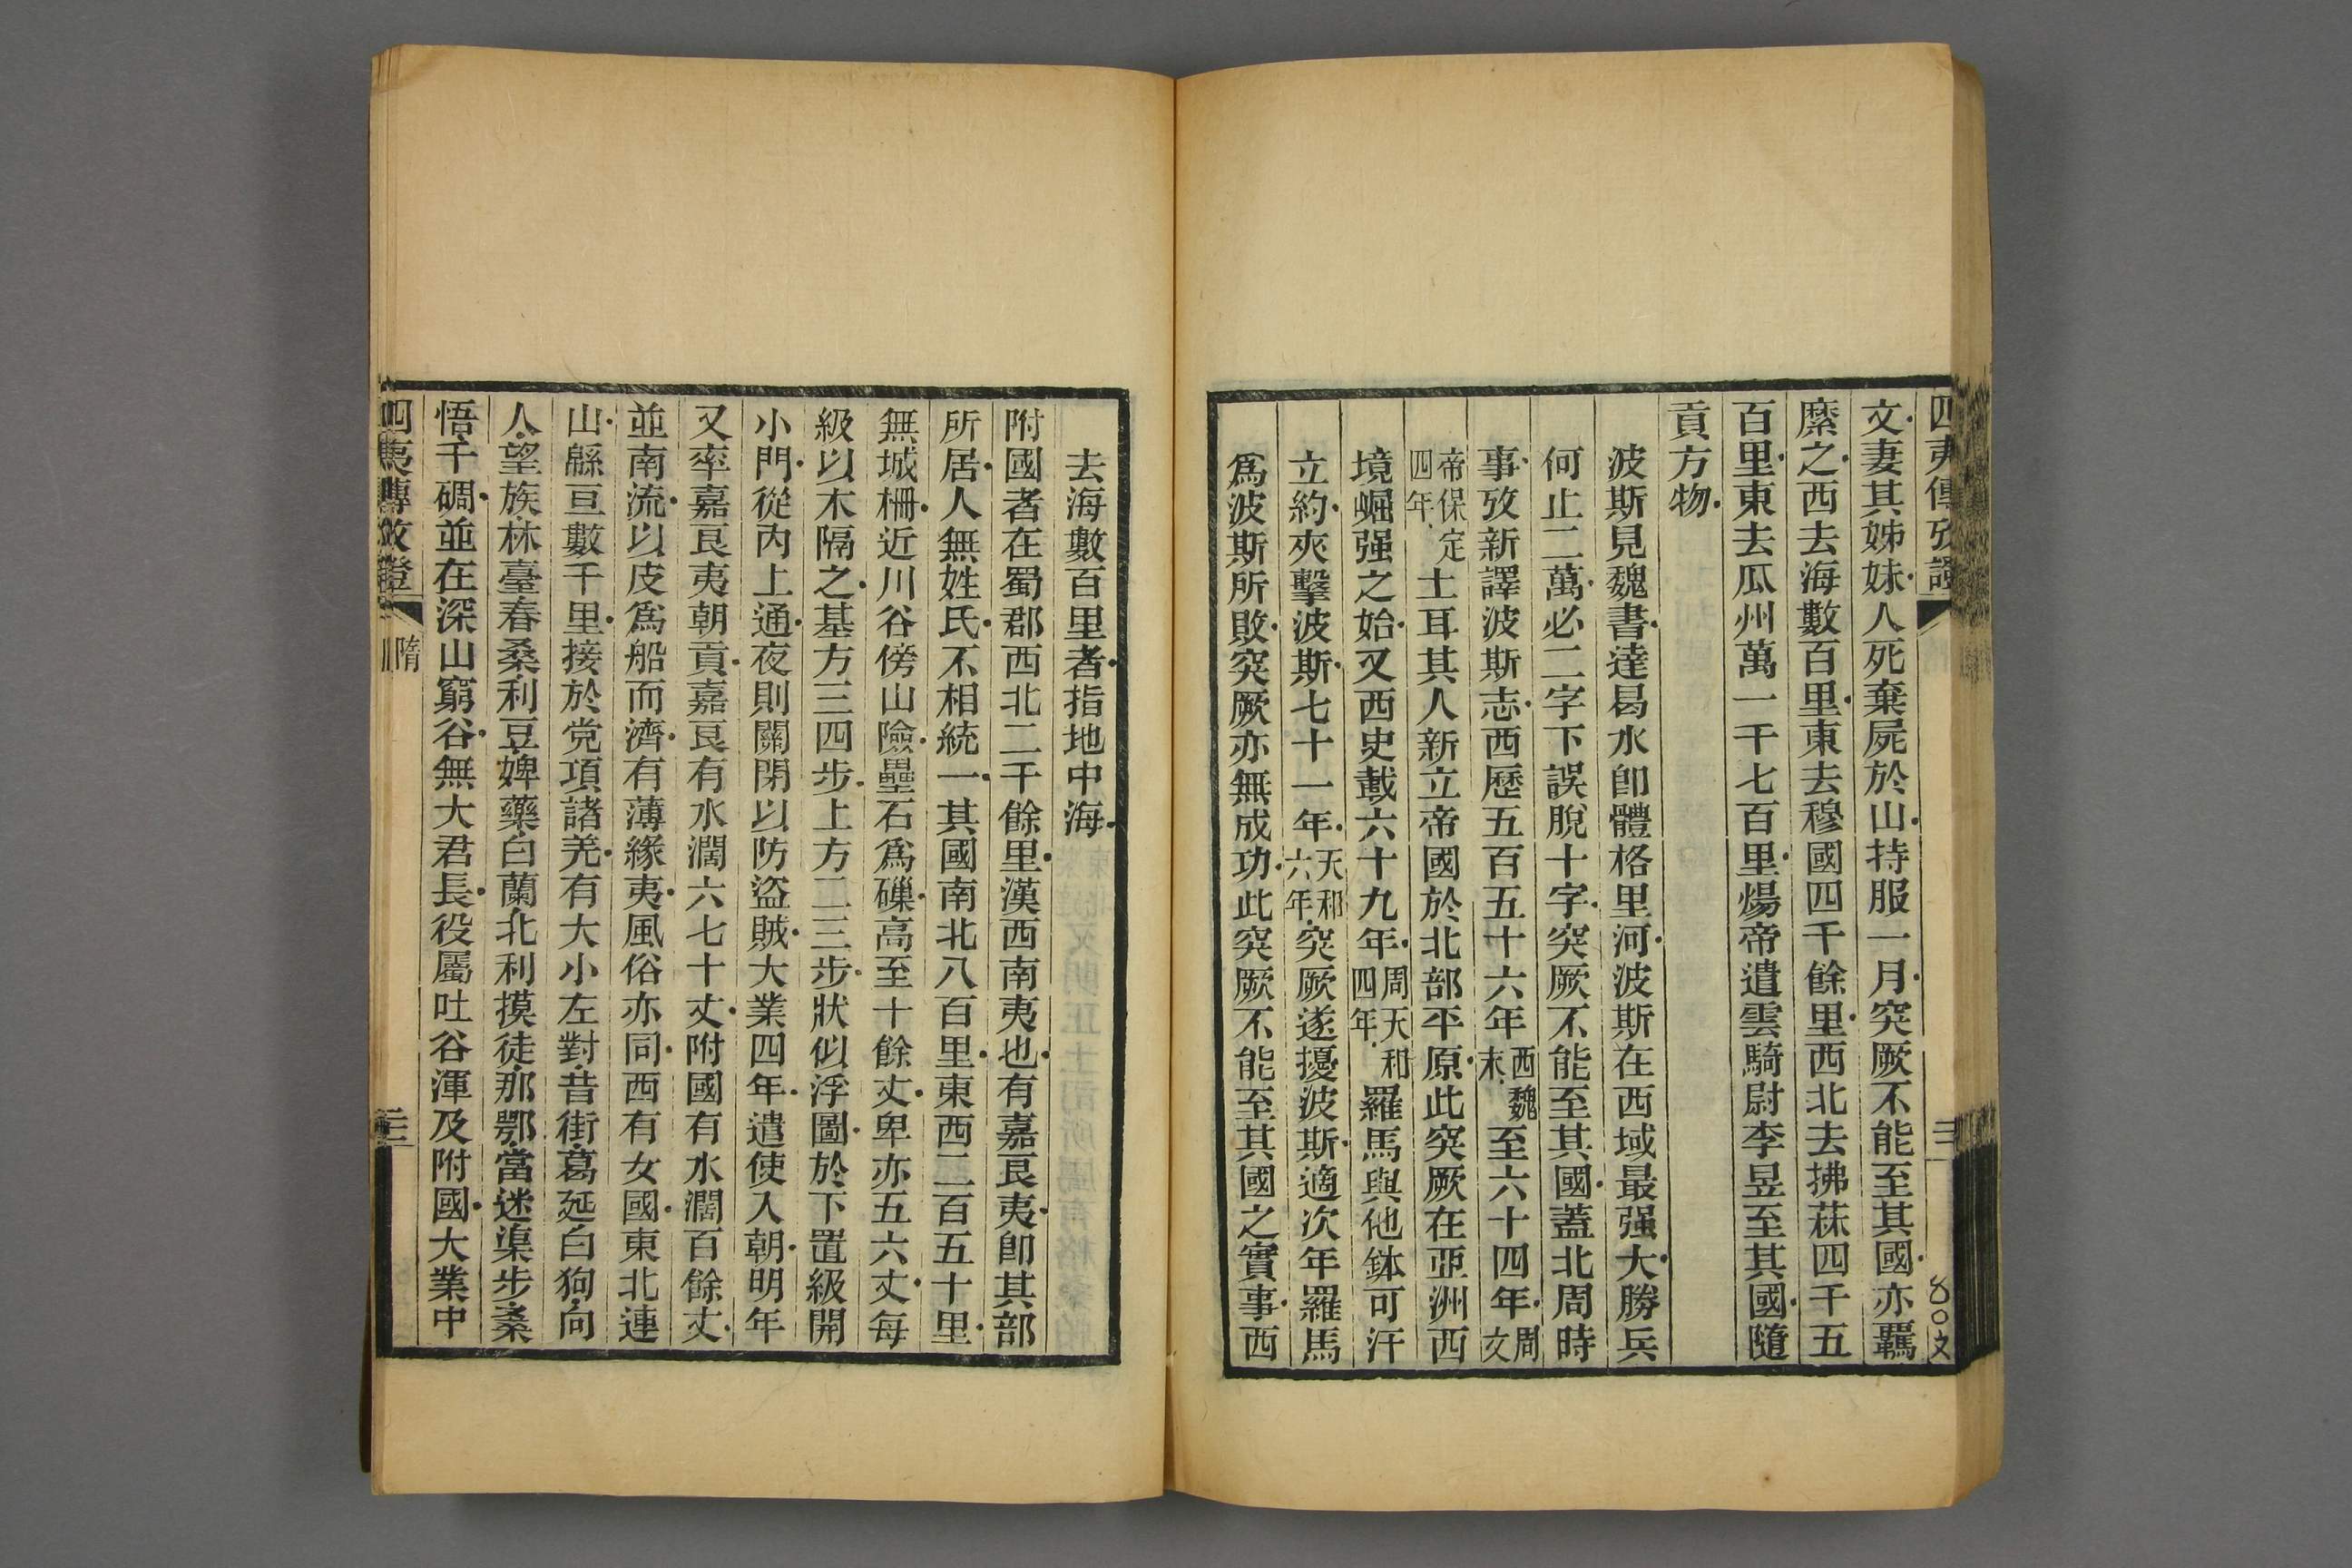 四夷傳攷證
文妻其姊妹人死棄屍於山持服一月突厥不能至其國亦羈
縻之西去海數百里東去穆國四千餘里西北去拂菻四千五
百里東去瓜州萬一千七百里煬帝遣雲騎尉李昱至其國隨
貢方物
波斯見魏書達曷水卽體格里河波斯在西域最强大勝兵
何止二萬必二字下誤脫十字突厥不能至其國蓋北周時
事攷新譯波斯志西歷五百五十六年西魏末至六十四年周文
帝保定四年土耳其人新立帝國於北部平原此突厥在亞洲西
境崛强之始又西史載六十九年周天和四年羅馬與他鉢可汗
立約夾擊波斯七十一年天和六年突厥遂擾波斯適次年羅馬
爲波斯所敗突厥亦無成功此突厥不能至其國之實事西
去海數百里者指地中海
附國者在蜀郡西北二千餘里漢西南夷也有嘉良夷卽其部
所居人無姓氏不相統一其國南北八百里東西二百五十里
無城柵近川谷傍山險壘石爲𥕢高至十餘丈卑亦五六丈每
級以木隔之基方三四步上方二三步狀似浮圖於下置級開
小門從內上通夜則關閉以防盜賊大業四年遣使入朝明年
又率嘉良夷朝貢嘉良有水濶六七十丈附國有水濶百餘丈
並南流以皮爲船而濟有薄緣夷風俗亦同西有女國東北連
山緜亘數千里接於党項諸羌有大小左對昔街葛延白狗向
人望族林臺春桑利豆婢藥白蘭北利摸徒那鄂當迷渠步桑
悟千碉並在深山窮谷無大君長役屬吐谷渾及附國大業中
四夷傳攷證
隋